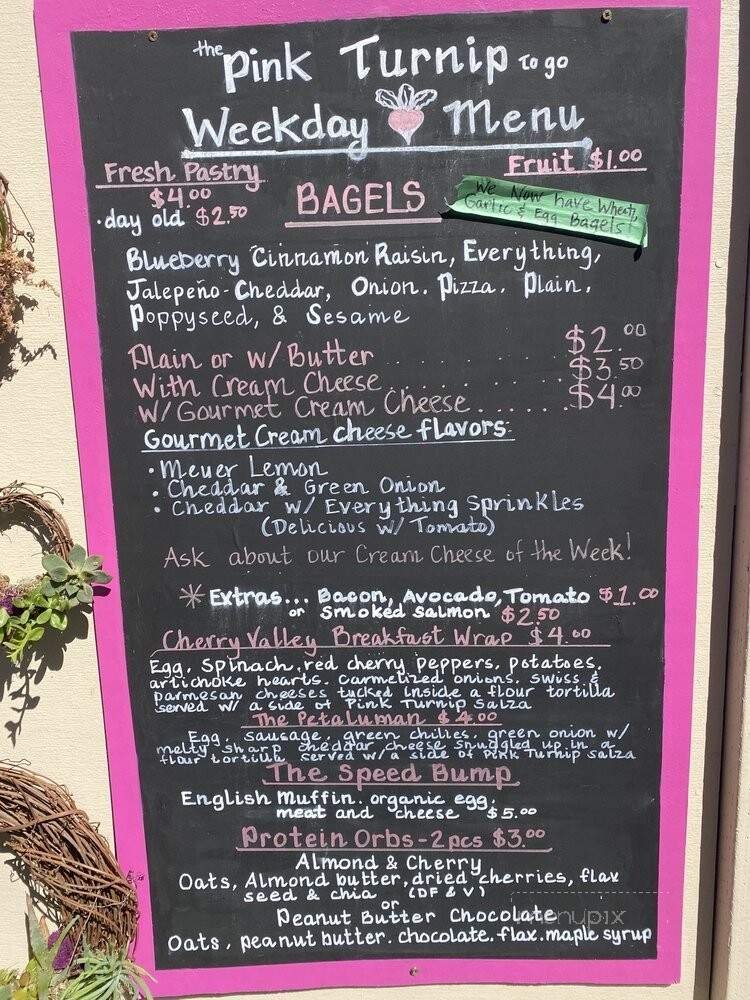 the Pink Turnip To go
Weekday Menu
Fresh Pastry
$4.00
·day old $2.50
Fruit $1.00
BAGELS
We Now have Wheat,
Garlic & Egg Bagels!
Blueberry Cinnamon Raisin, Everything,
Jalepeño-Cheddar, Onion. Pizza. Plain.
Poppyseed, & Sesame
Plain or w/ Butter .......... $2.00
With Cream Cheese .......... $3.50
W/ Gourmet Cream Cheese....... $4.00
Gourmet Cream cheese flavors:
• Meyer Lemon
• Cheddar & Green Onion
• Cheddar w/ Everything Sprinkles
(Delicious w/ Tomato)
Ask about our Cream Cheese of the Week!
* Extras... Bacon, Avocado, Tomato $1.00
or Smoked Salmon $2.50
Cherry Valley Breakfast Wrap $4.00
Egg, Spinach, red cherry peppers, potatoes,
artichoke hearts. carmelized onions. swiss &
parmesan cheeses tucked inside a flour tortilla
served w/ a side of Pink Turnip Salza
The Petaluman $4.00
Egg, sausage, green chilies, green onion w/
melty sharp cheddar cheese snuggled up in a
flour tortilla served w/ a side of Pink Turnip Salza
The Speed Bump
English Muffin. organic egg.
meat and cheese $5.00
Protein Orbs-2pcs $3.00
Almond & Cherry
Oats, Almond butter, dried cherries, flax
seed & chia (DF & V)
or
Peanut Butter Chocolate
Oats, peanut butter. chocolate. flax. maple syrup
menupix